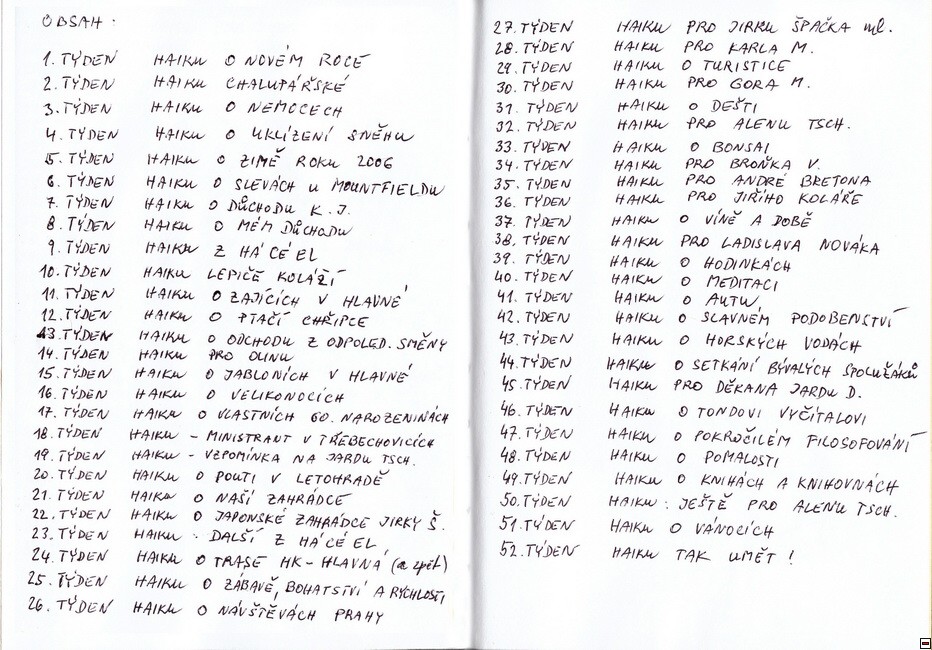 OBSAH:
1. TÝDEN HAIKU O NOVÉM ROCE
2. TÝDEN HAIKU CHALUPÁŘSKÉ
3. TÝDEN HAIKU O NEMOCECH
4. TÝDEN HAIKU O UKLÍZENÍ SNĚHU
5. TÝDEN HAIKU O ZIMĚ ROKU 2006
6. TÝDEN HAIKU O SLEVÁCH U MOUNTFIELDU
7. TÝDEN HAIKU O DŮCHODU K. J.
8. TÝDEN HAIKU O MÉM DŮCHODU
9. TÝDEN HAIKU Z HÁCÉEL
10. TÝDEN HAIKU LEPIČE KOLÁŽÍ
11. TÝDEN HAIKU O ZAJÍCÍCH V HLAVNÉ
12. TÝDEN HAIKU O PTAČÍ CHŘIPCE
13. TÝDEN HAIKU O ODCHODU Z ODPOLED. SMĚNY
14. TÝDEN HAIKU PRO OLINU
15. TÝDEN HAIKU O JABLONÍCH V HLAVNÉ
16. TÝDEN HAIKU O VELIKONOCÍCH
17. TÝDEN HAIKU O VLASTNÍCH 60. NAROZENINÁCH
18. TÝDEN HAIKU - MINISTRANT V TŘEBECHOVICÍCH
19. TÝDEN HAIKU - VZPOMÍNKA NA JARDU TSCH.
20. TÝDEN HAIKU O POUTI V LETOHRADĚ
21. TÝDEN HAIKU O NAŠÍ ZAHRÁDCE
22. TÝDEN HAIKU O JAPONSKÉ ZAHRÁDCE JIRKY Š.
23. TÝDEN HAIKU - DALŠÍ Z HÁCÉEL
24. TÝDEN HAIKU O TRASE HK - HLAVNÁ (a zpět)
25. TÝDEN HAIKU O ZÁBAVĚ, BOHATSTVÍ A RYCHLOSTI
26. TÝDEN HAIKU O NÁVŠTĚVÁCH PRAHY
27. TÝDEN HAIKU PRO JIRKU ŠPAČKA ml.
28. TÝDEN HAIKU PRO KARLA M.
29. TÝDEN HAIKU O TURISTICE
30. TÝDEN HAIKU PRO GORA M.
31. TÝDEN HAIKU O DEŠTI
32. TÝDEN HAIKU PRO ALENU TSCH.
33. TÝDEN HAIKU O BONSAI
34. TÝDEN HAIKU PRO BROŇKA V.
35. TÝDEN HAIKU PRO ANDRÉ BRETONA
36. TÝDEN HAIKU PRO JIŘÍHO KOLÁŘE
37. TÝDEN HAIKU O VÍNĚ A DOBĚ
38. TÝDEN HAIKU PRO LADISLAVA NOVÁKA
39. TÝDEN HAIKU O HODINKÁCH
40. TÝDEN HAIKU O MEDITACI
41. TÝDEN HAIKU O AUTU
42. TÝDEN HAIKU O SLAVNÉM PODOBENSTVÍ
43. TÝDEN HAIKU O HORSKÝCH VODÁCH
44. TÝDEN HAIKU O SETKÁNÍ BÝVALÝCH SPOLUŽÁKŮ
45. TÝDEN HAIKU PRO DĚKANA JARDU D.
46. TÝDEN HAIKU O TONDOVI VYČÍTALOVI
47. TÝDEN HAIKU O POKROČILÉM FILOSOFOVÁNÍ
48. TÝDEN HAIKU O POMALOSTI
49. TÝDEN HAIKU O KNIHÁCH A KNIHOVNÁCH
50. TÝDEN HAIKU : JEŠTĚ PRO ALENU TSCH.
51. TÝDEN HAIKU O VÁNOCÍCH
52. TÝDEN HAIKU TAK UMĚT !